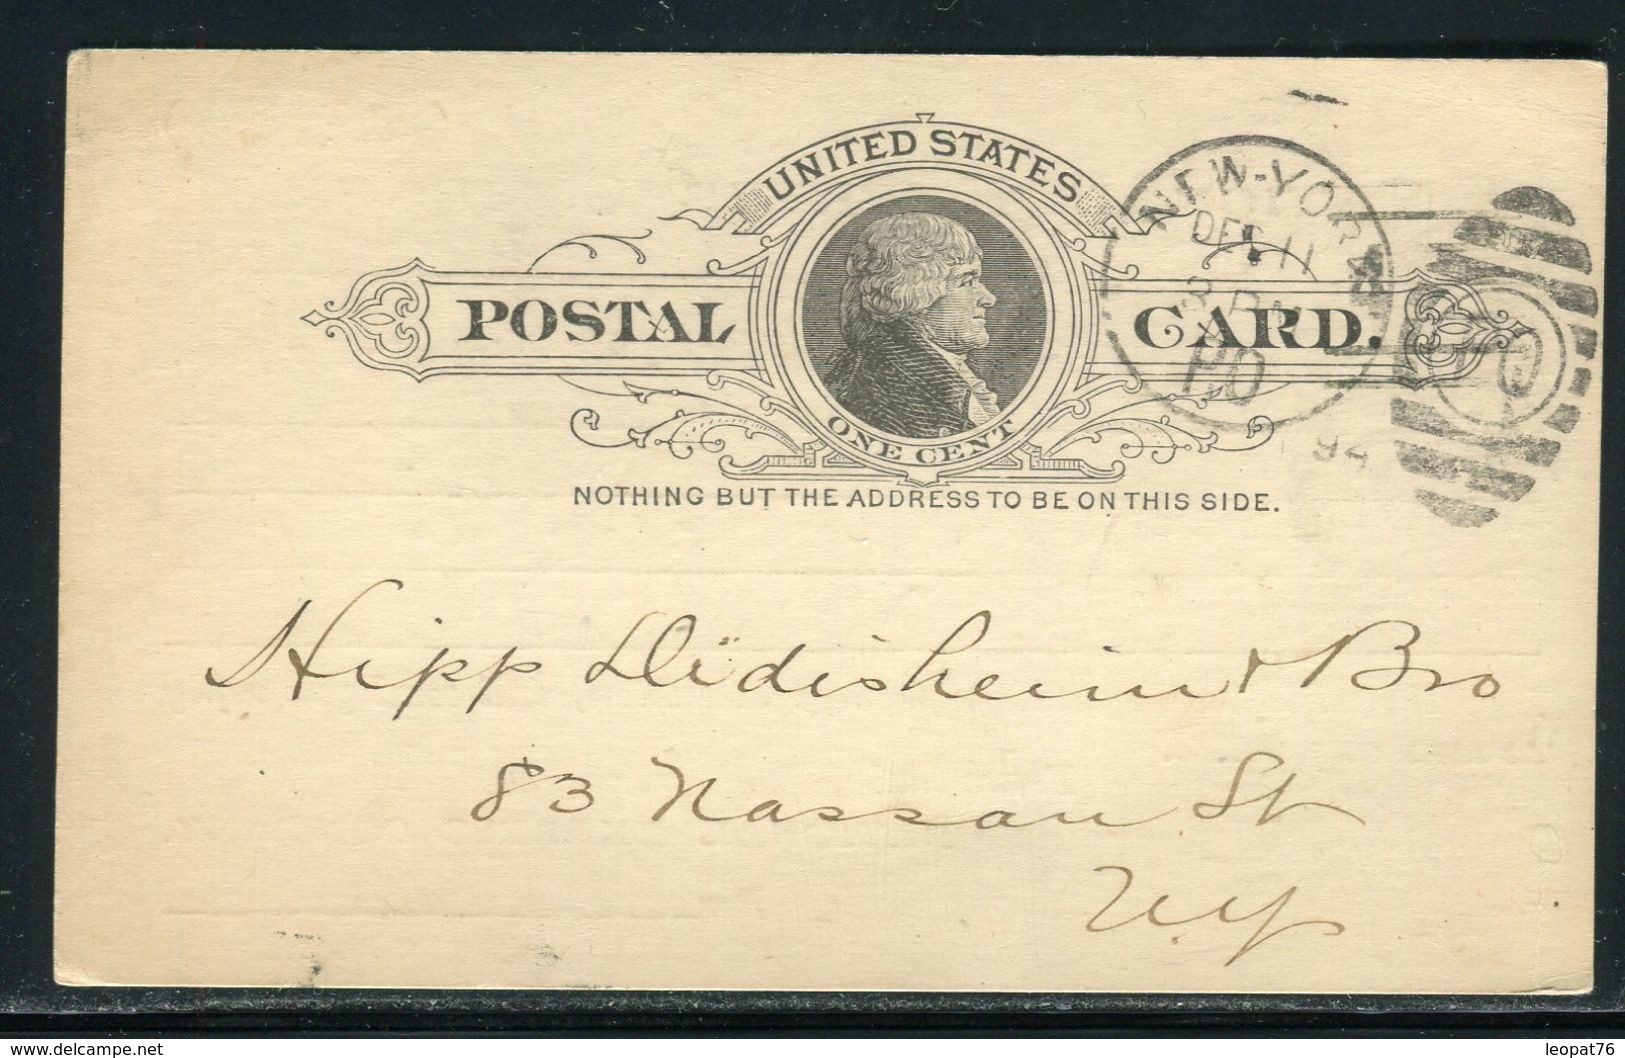 UNITED STATES
POSTAL CARD.
ONE CENT
NOTHING BUT THE ADDRESS TO BE ON THIS SIDE.
NEW-YORK
DEC 11
PM
94
Hipp Didisheim & Bro
83 Nassau St
N.Y.
delcampe.net
leopat76